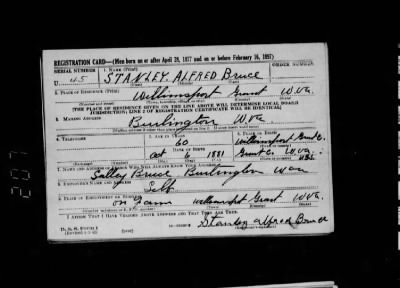 REGISTRATION CARD—(Men born on or after April 28, 1877 and on or before February 16, 1897)
SERIAL NUMBER 1. NAME (Print) ORDER NUMBER
U 45 STANLEY ALFRED Bruce
2. PLACE OF RESIDENCE (Print)
Williamsport Grant W.Va.
[THE PLACE OF RESIDENCE GIVEN ON THE LINE ABOVE WILL DETERMINE LOCAL BOARD
JURISDICTION; LINE 2 OF REGISTRATION CERTIFICATE WILL BE IDENTICAL]
3. MAILING ADDRESS
Burlington W.Va.
4. TELEPHONE 5. AGE IN YEARS 6. PLACE OF BIRTH
60 Williamsport
DATE OF BIRTH
Oct 6 1881 Grant
7. NAME AND ADDRESS OF PERSON WHO WILL ALWAYS KNOW YOUR ADDRESS
Salley Bruce Burlington
8. EMPLOYER'S NAME AND ADDRESS
Self
9. PLACE OF EMPLOYMENT OR BUSINESS
on Farm Williamsport Grant W.Va.
I AFFIRM THAT I HAVE VERIFIED ABOVE ANSWERS AND THAT THEY ARE TRUE.
D. S. S. Form 1
Stanley Alfred Bruce
207